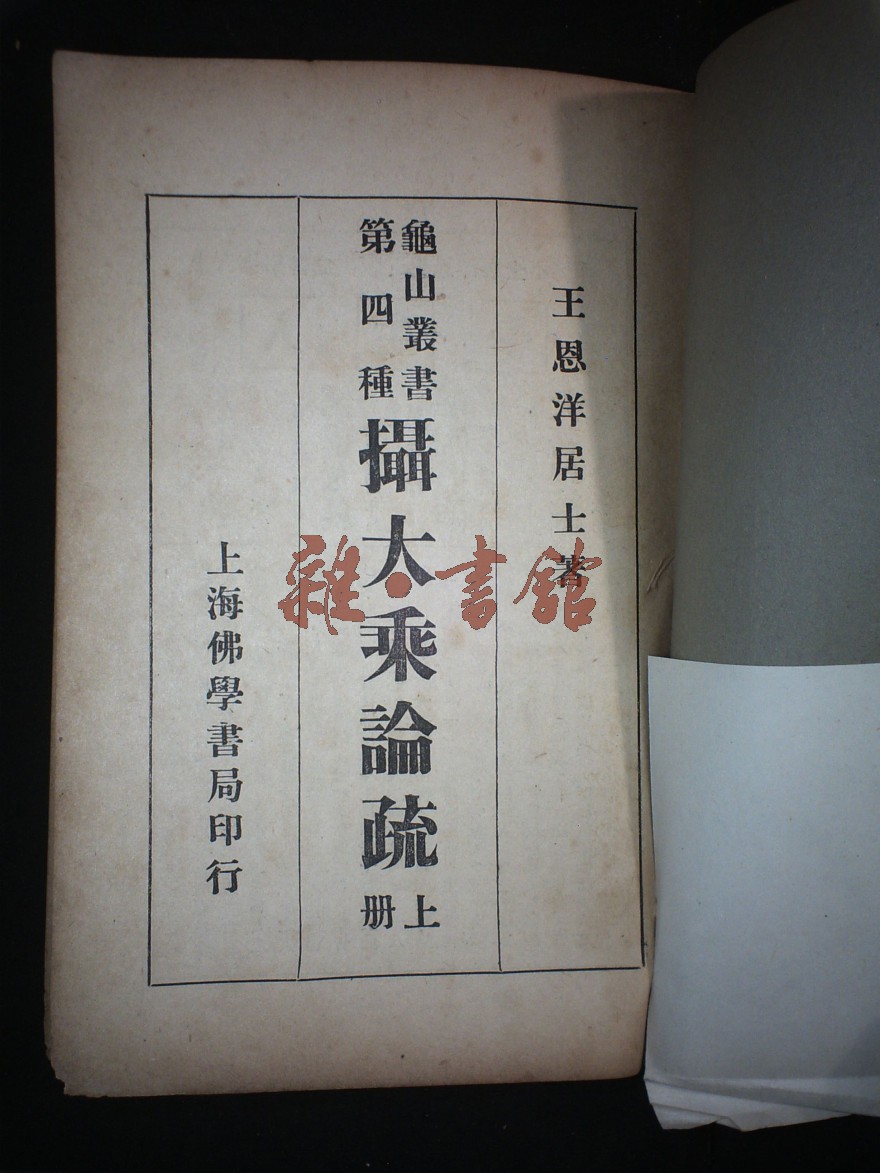 王恩洋居士著
龜山叢書
第四種
攝大乘論疏
上
册
上海佛學書局印行
雜·書館